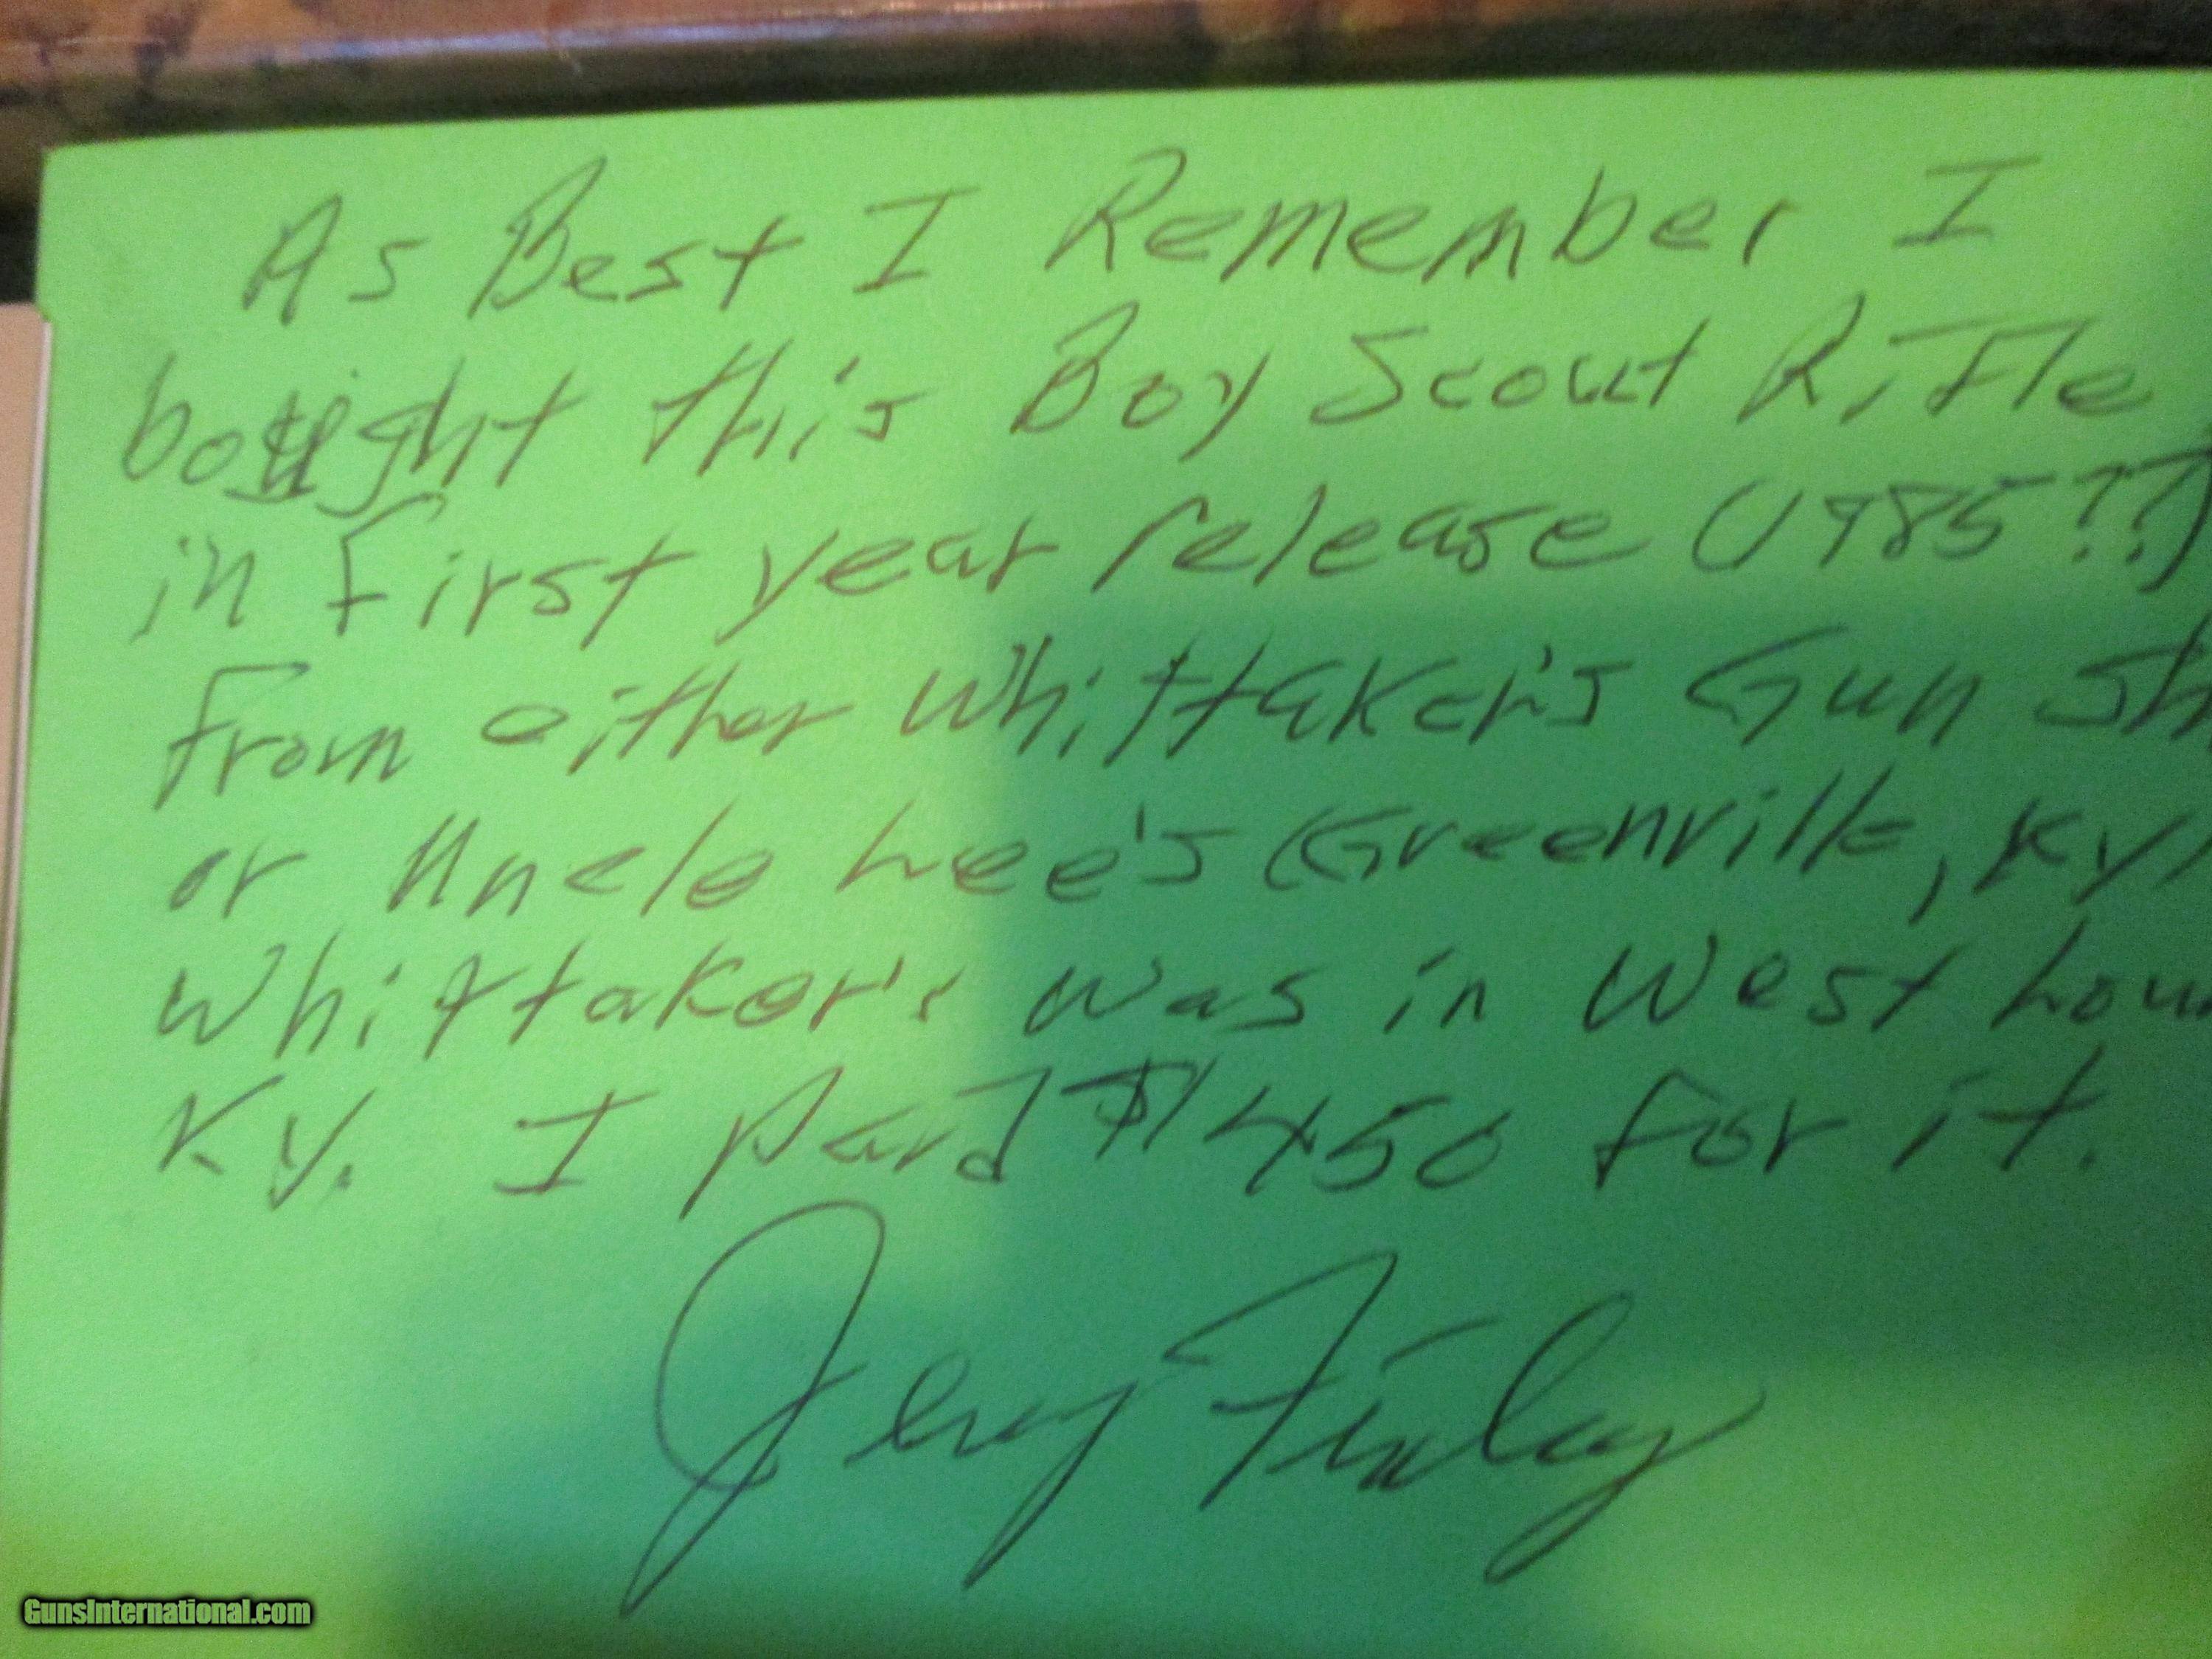 As Best I Remember I
bought this Boy Scout Rifle
in First year release (1985??)
From either Whittaker's Gun Sh
or Uncle Lee's (Greenville, Ky)
Whittaker's was in West Lou
Ky. I paid $450 for it.
Jerry Finley
GunsInternational.com